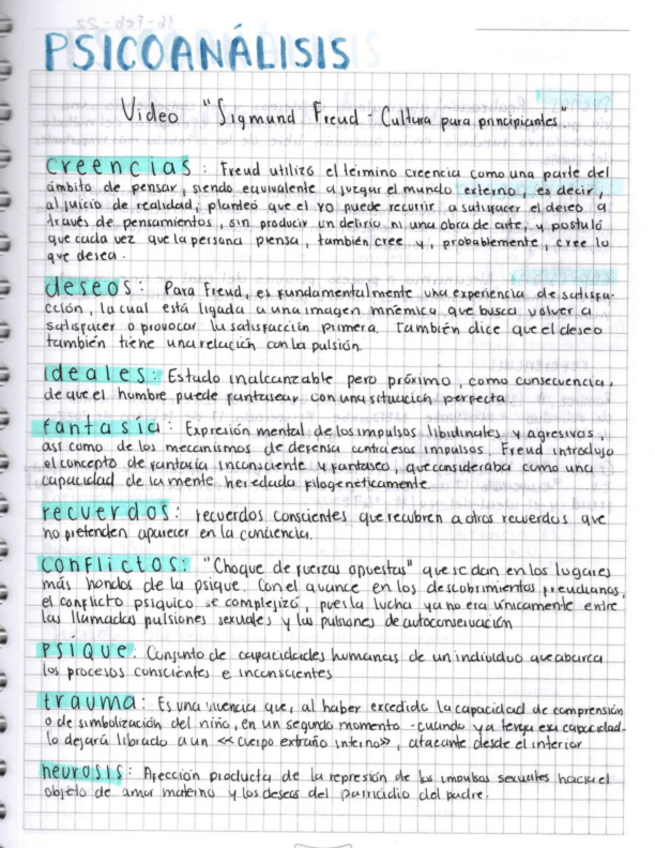 PSICOANÁLISIS
Video "Sigmund Freud - Cultura para principiantes"
creencias: Freud utilizó el término creencia como una parte del
ámbito de pensar, siendo equivalente a juzgar el mundo externo, es decir,
al juicio de realidad; planteó que el yo puede recurrir a satisfacer el deseo a
través de pensamientos, sin producir un delirio ni una obra de arte, y postuló
que cada vez que la persona piensa, también cree y, probablemente, cree lo
que desea.
deseos: Para Freud, es fundamentalmente una experiencia de satisfa-
cción, la cual está ligada a una imagen mnémica que busca volver a
satisfacer o provocar la satisfacción primera. También dice que el deseo
también tiene una relación con la pulsión.
Ideales: Estado inalcanzable pero próximo, como consecuencia,
de que el hombre puede fantasear con una situación perfecta.
fantasía: Expresión mental de los impulsos libidinales y agresivos,
así como de los mecanismos de defensa contra esos impulsos. Freud introdujo
el concepto de fantasía inconsciente y fantaseo, que consideraba como una
capacidad de la mente heredada filogenéticamente.
recuerdos: recuerdos conscientes que recubren a otros recuerdos que
no pretenden aparecer en la conciencia.
conflictos: "Choque de fuerzas opuestas" que se dan en los lugares
más hondos de la psique. Con el avance en los descubrimientos freudianos,
el conflicto psíquico se complejizó, pues la lucha ya no era únicamente entre
las llamadas pulsiones sexuales y las pulsiones de autoconservación
PSIQUE: Conjunto de capacidades humanas de un individuo que abarca
los procesos conscientes e inconscientes
trauma: Es una vivencia que, al haber excedido la capacidad de comprensión
o de simbolización del niño, en un segundo momento -cuando ya tenga esa capacidad-
lo dejará librado a un <<cuerpo extraño interno>>, atacante desde el interior
neurosis: Afección producta de la represión de los impulsos sexuales hacia el
objeto de amor materno y los deseos del parricidio del padre.